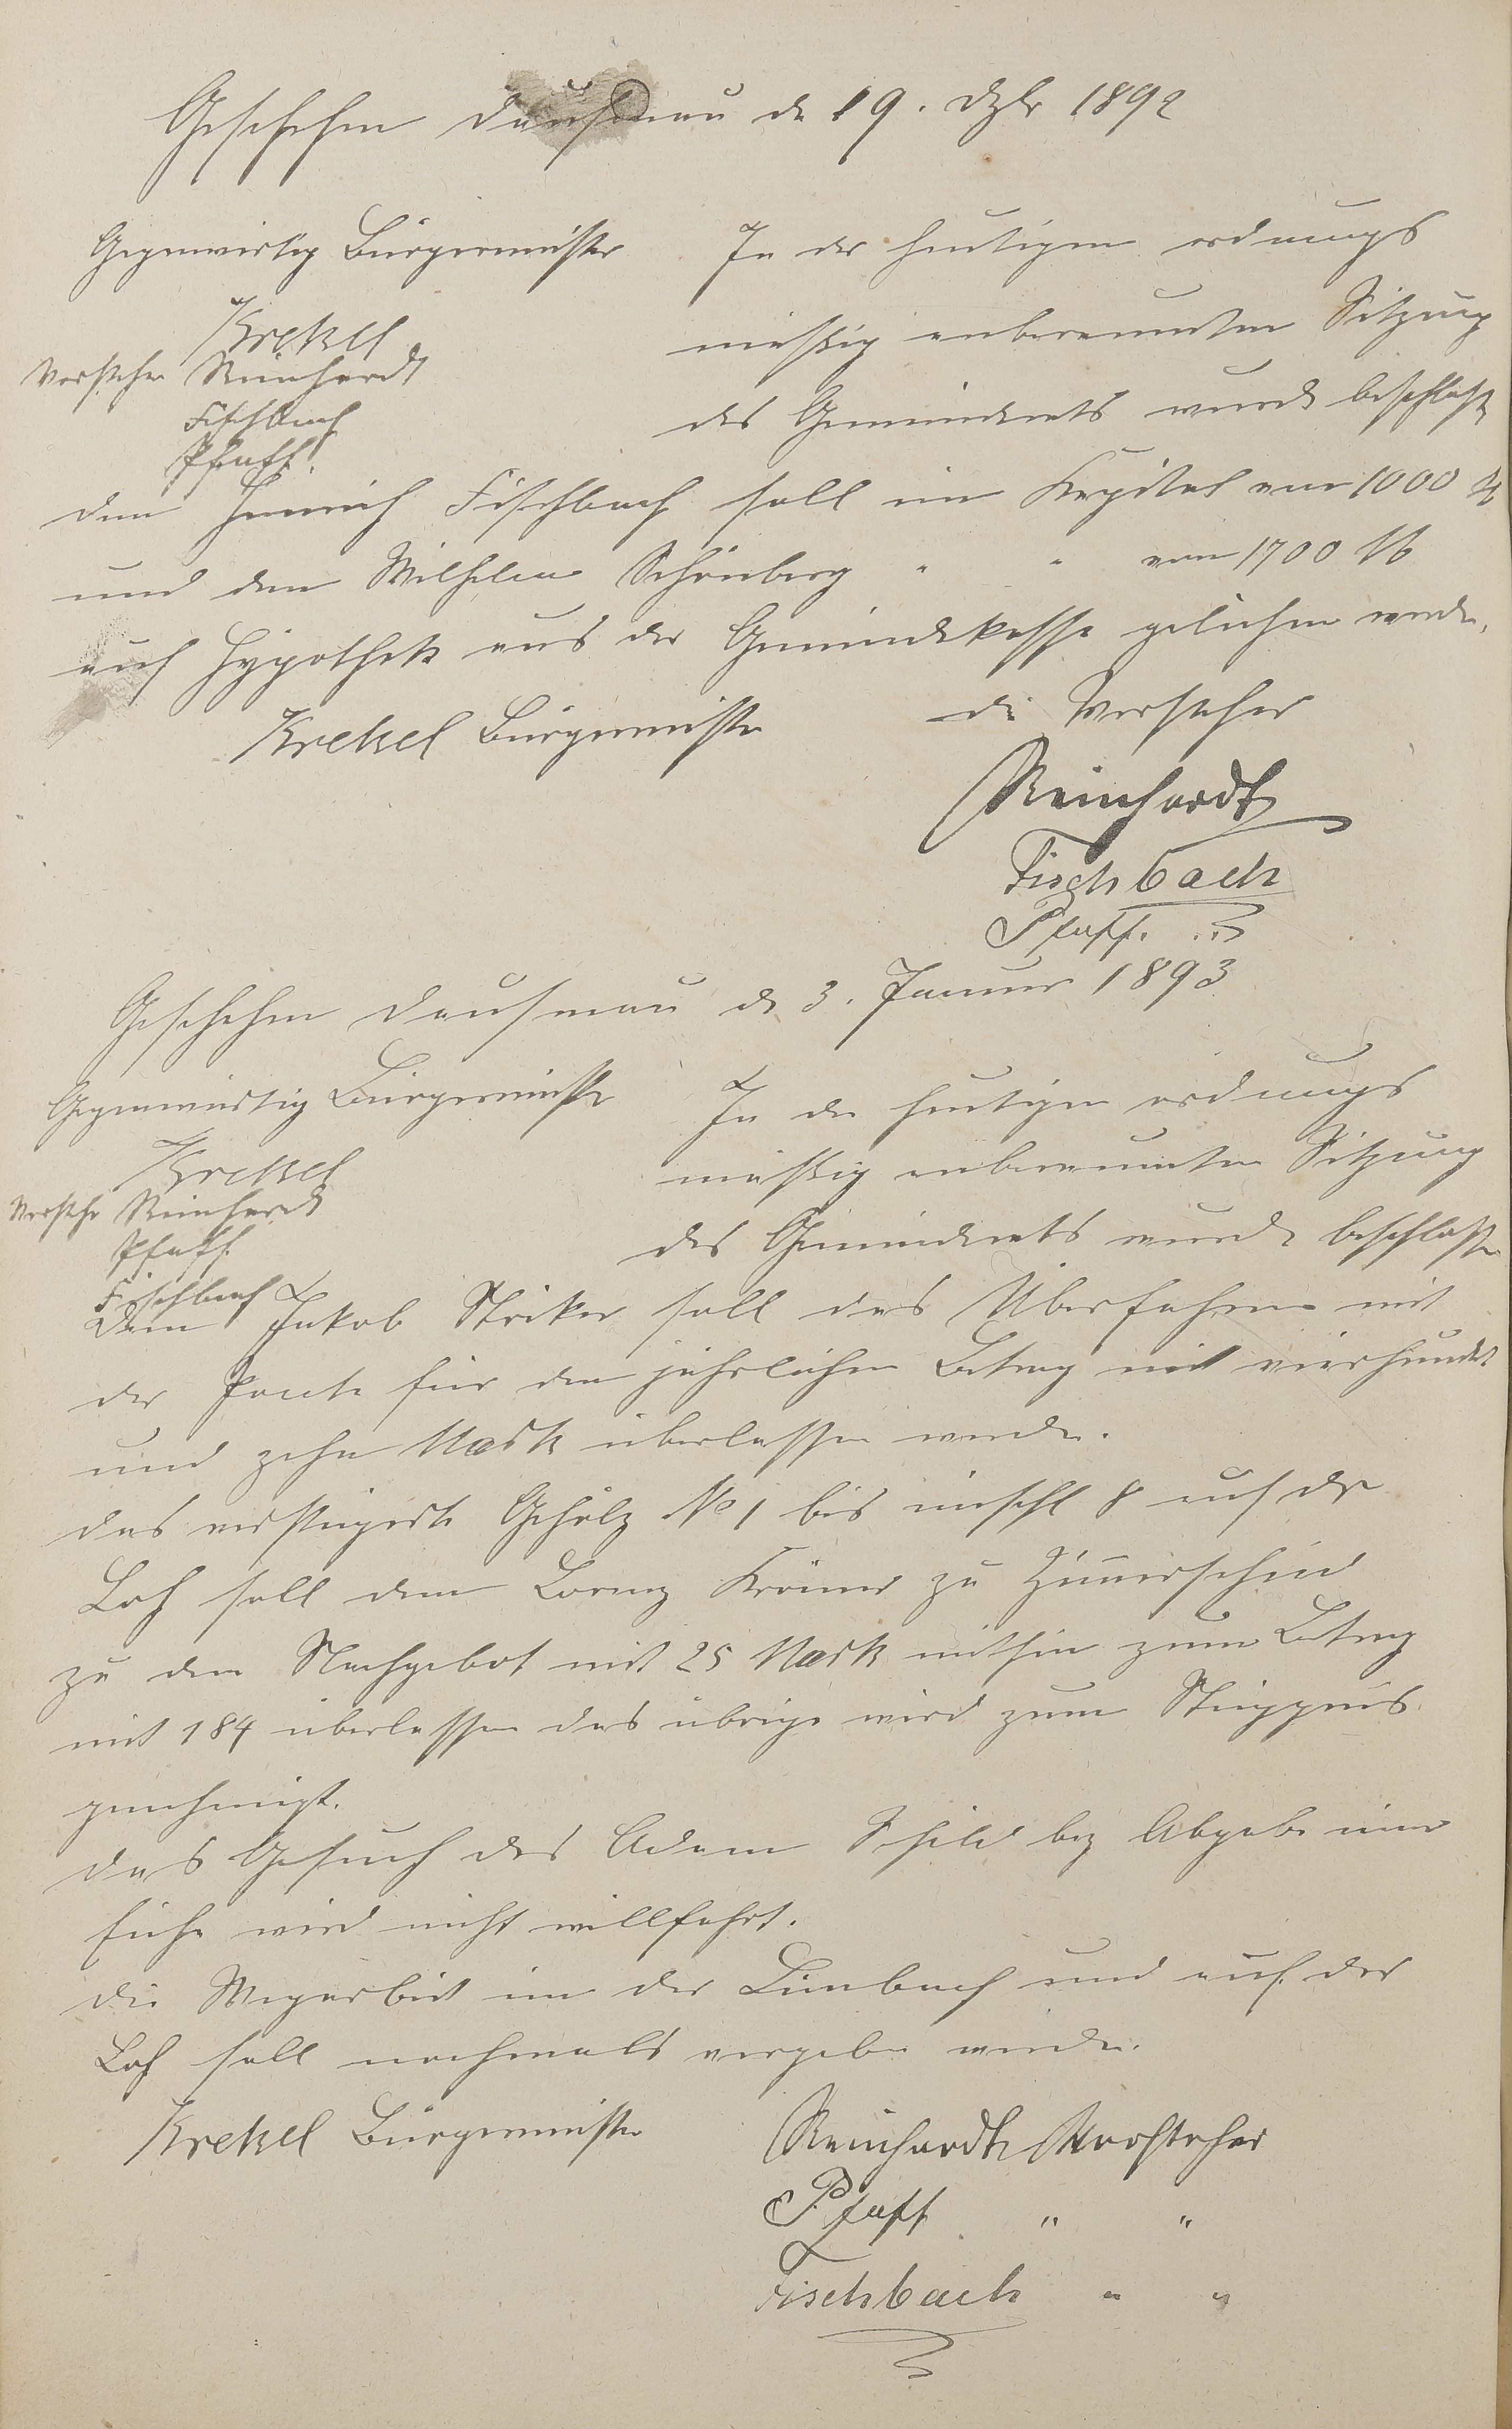 Geschehen Dausenau de 19. Dzbr 1892
Gegenwärtig Bürgermeister
Krekel
Vorsteher Reinhardt
Fischbach
Pfaff.
In der heutigen ordnungs
mäßig anberaumten Sitzung
des Gemeinderats wurde beschloße
dem Heinrich Fischbach soll ein Kapital von 1000 M
und dem Wilhelm Schönberg " " von 1700 M
auf Hypothek aus der Gemeindekasse geliehen werde.
Krekel Bürgermeister
die Vorsteher
Reinhardt
Fischbach
Pfaff.
Geschehen Dausenau de 3. Januar 1893
Gegenwärtig Bürgermeister
Krekel
Vorsteher Reinhardt
Pfaff.
Fischbach
In der heutigen ordnungs
mäßig anberaumten Sitzung
des Gemeinderats wurde beschlosse
Dem Jakob Stricker soll das Überfahren mit
der Ponte für den jährlichen Betrag mit vierhundert
und zehn Mark überlassen werde.
das versteigerte Gehölz No 1 bis einschl 8 auf der
Loh soll dem Lorenz Krämer zu Zimmerschied
zu dem Nachgebot mit 25 Mark mithin zum Betrag
mit 184 überlassen das übrige wird zum Steigpreis
genehmigt.
das Gesuch des Adam Schild bez Abgabe einer
Eiche wird nicht willfahrt.
die Wegarbeit in der Limbach und auf der
Loh soll nochmals vergeben werde.
Krekel Bürgermeister
Reinhardt Vorsteher
Pfaff " "
Fischbach " "